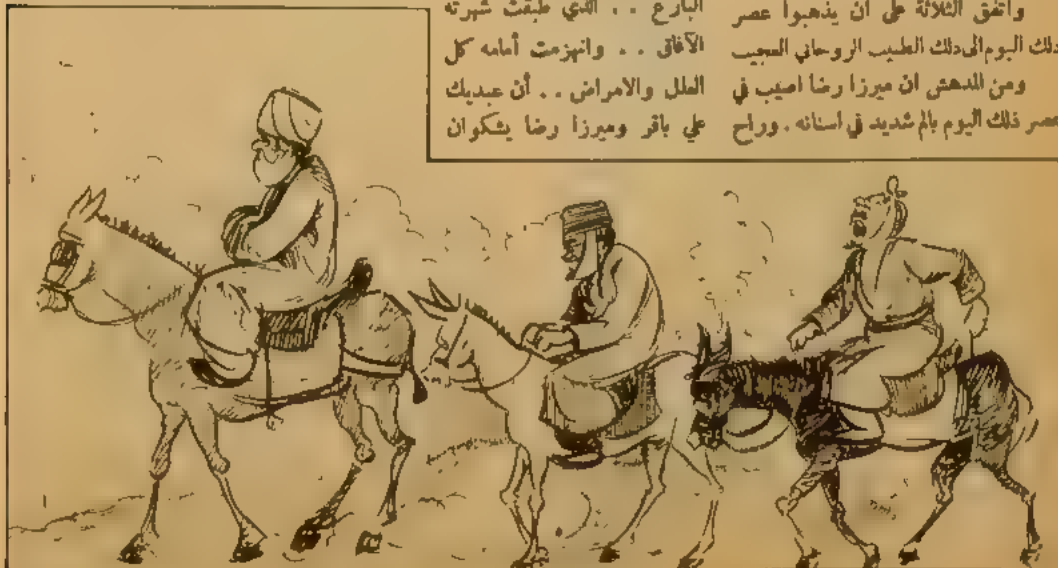 واتفق الثلاثة على ان يذهبوا عصر
ذلك اليوم الى ذلك الطبيب الروحاني العجيب
ومن المدهش ان ميرزا رضا اصيب في
عصر ذلك اليوم بالم شديد في اسنانه . وراح
البارع . . الذي طبقت شهرته
الآفاق . . وانهزمت أمامه كل
العلل والامراض . . أن عبديك
علي باقر وميرزا رضا يشكوان